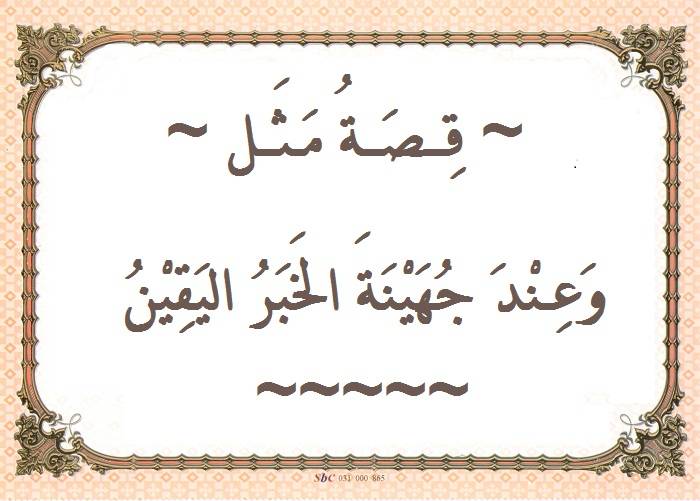 ~ قِـصَـةُ مَـثَـل ~
وَعِـنْـدَ جُهَيْنَةَ الخَبَرُ اليَقِيْنُ
~~~~~
SbC 031 000 865